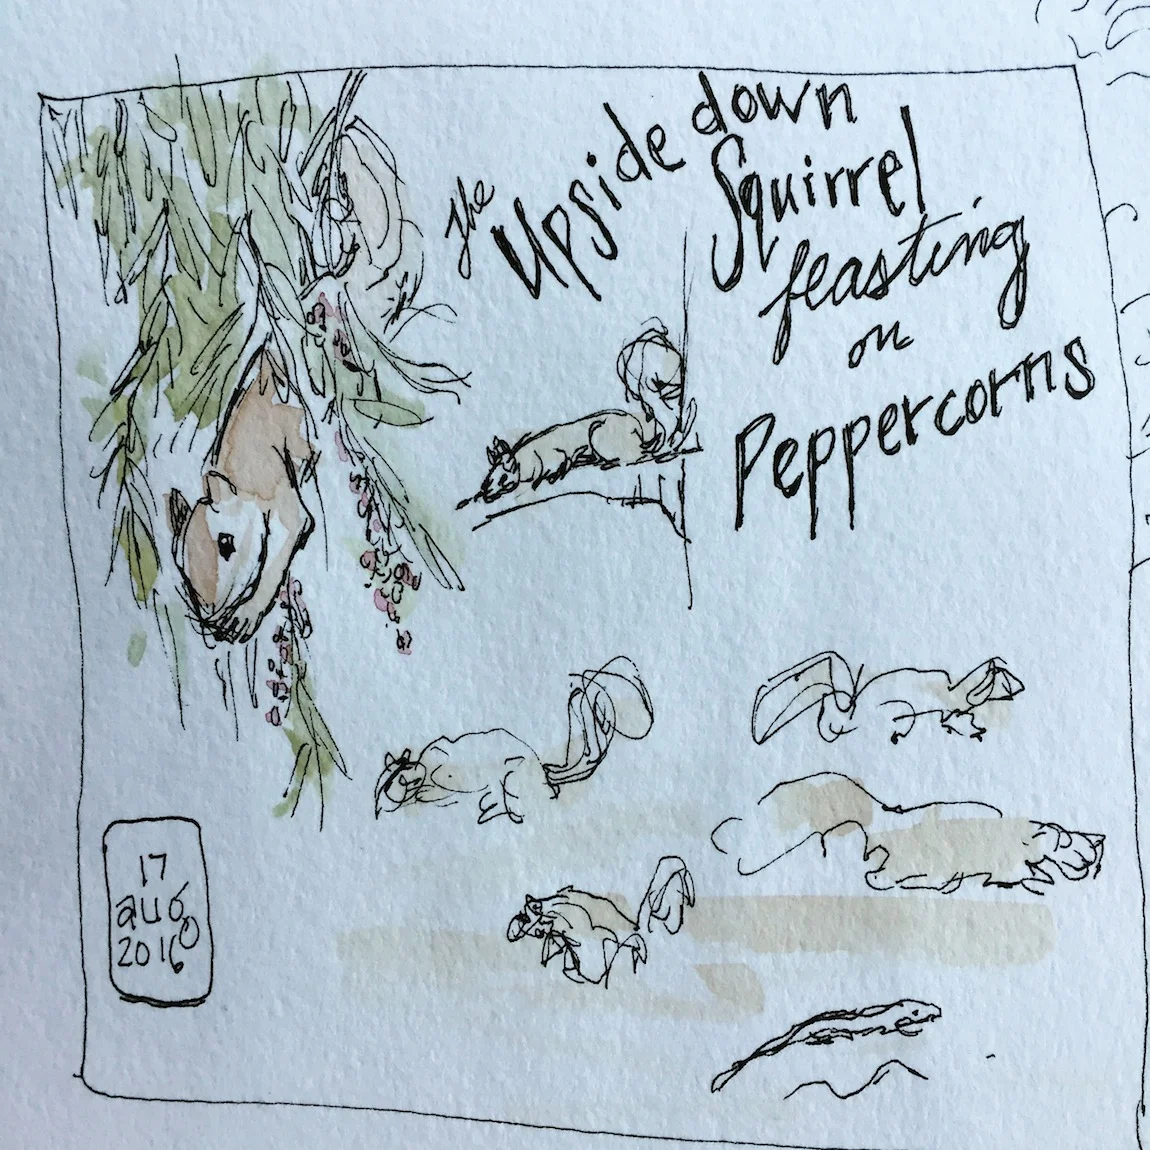 the
Upside down
Squirrel
feasting
on
Peppercorns
17
aug
2016